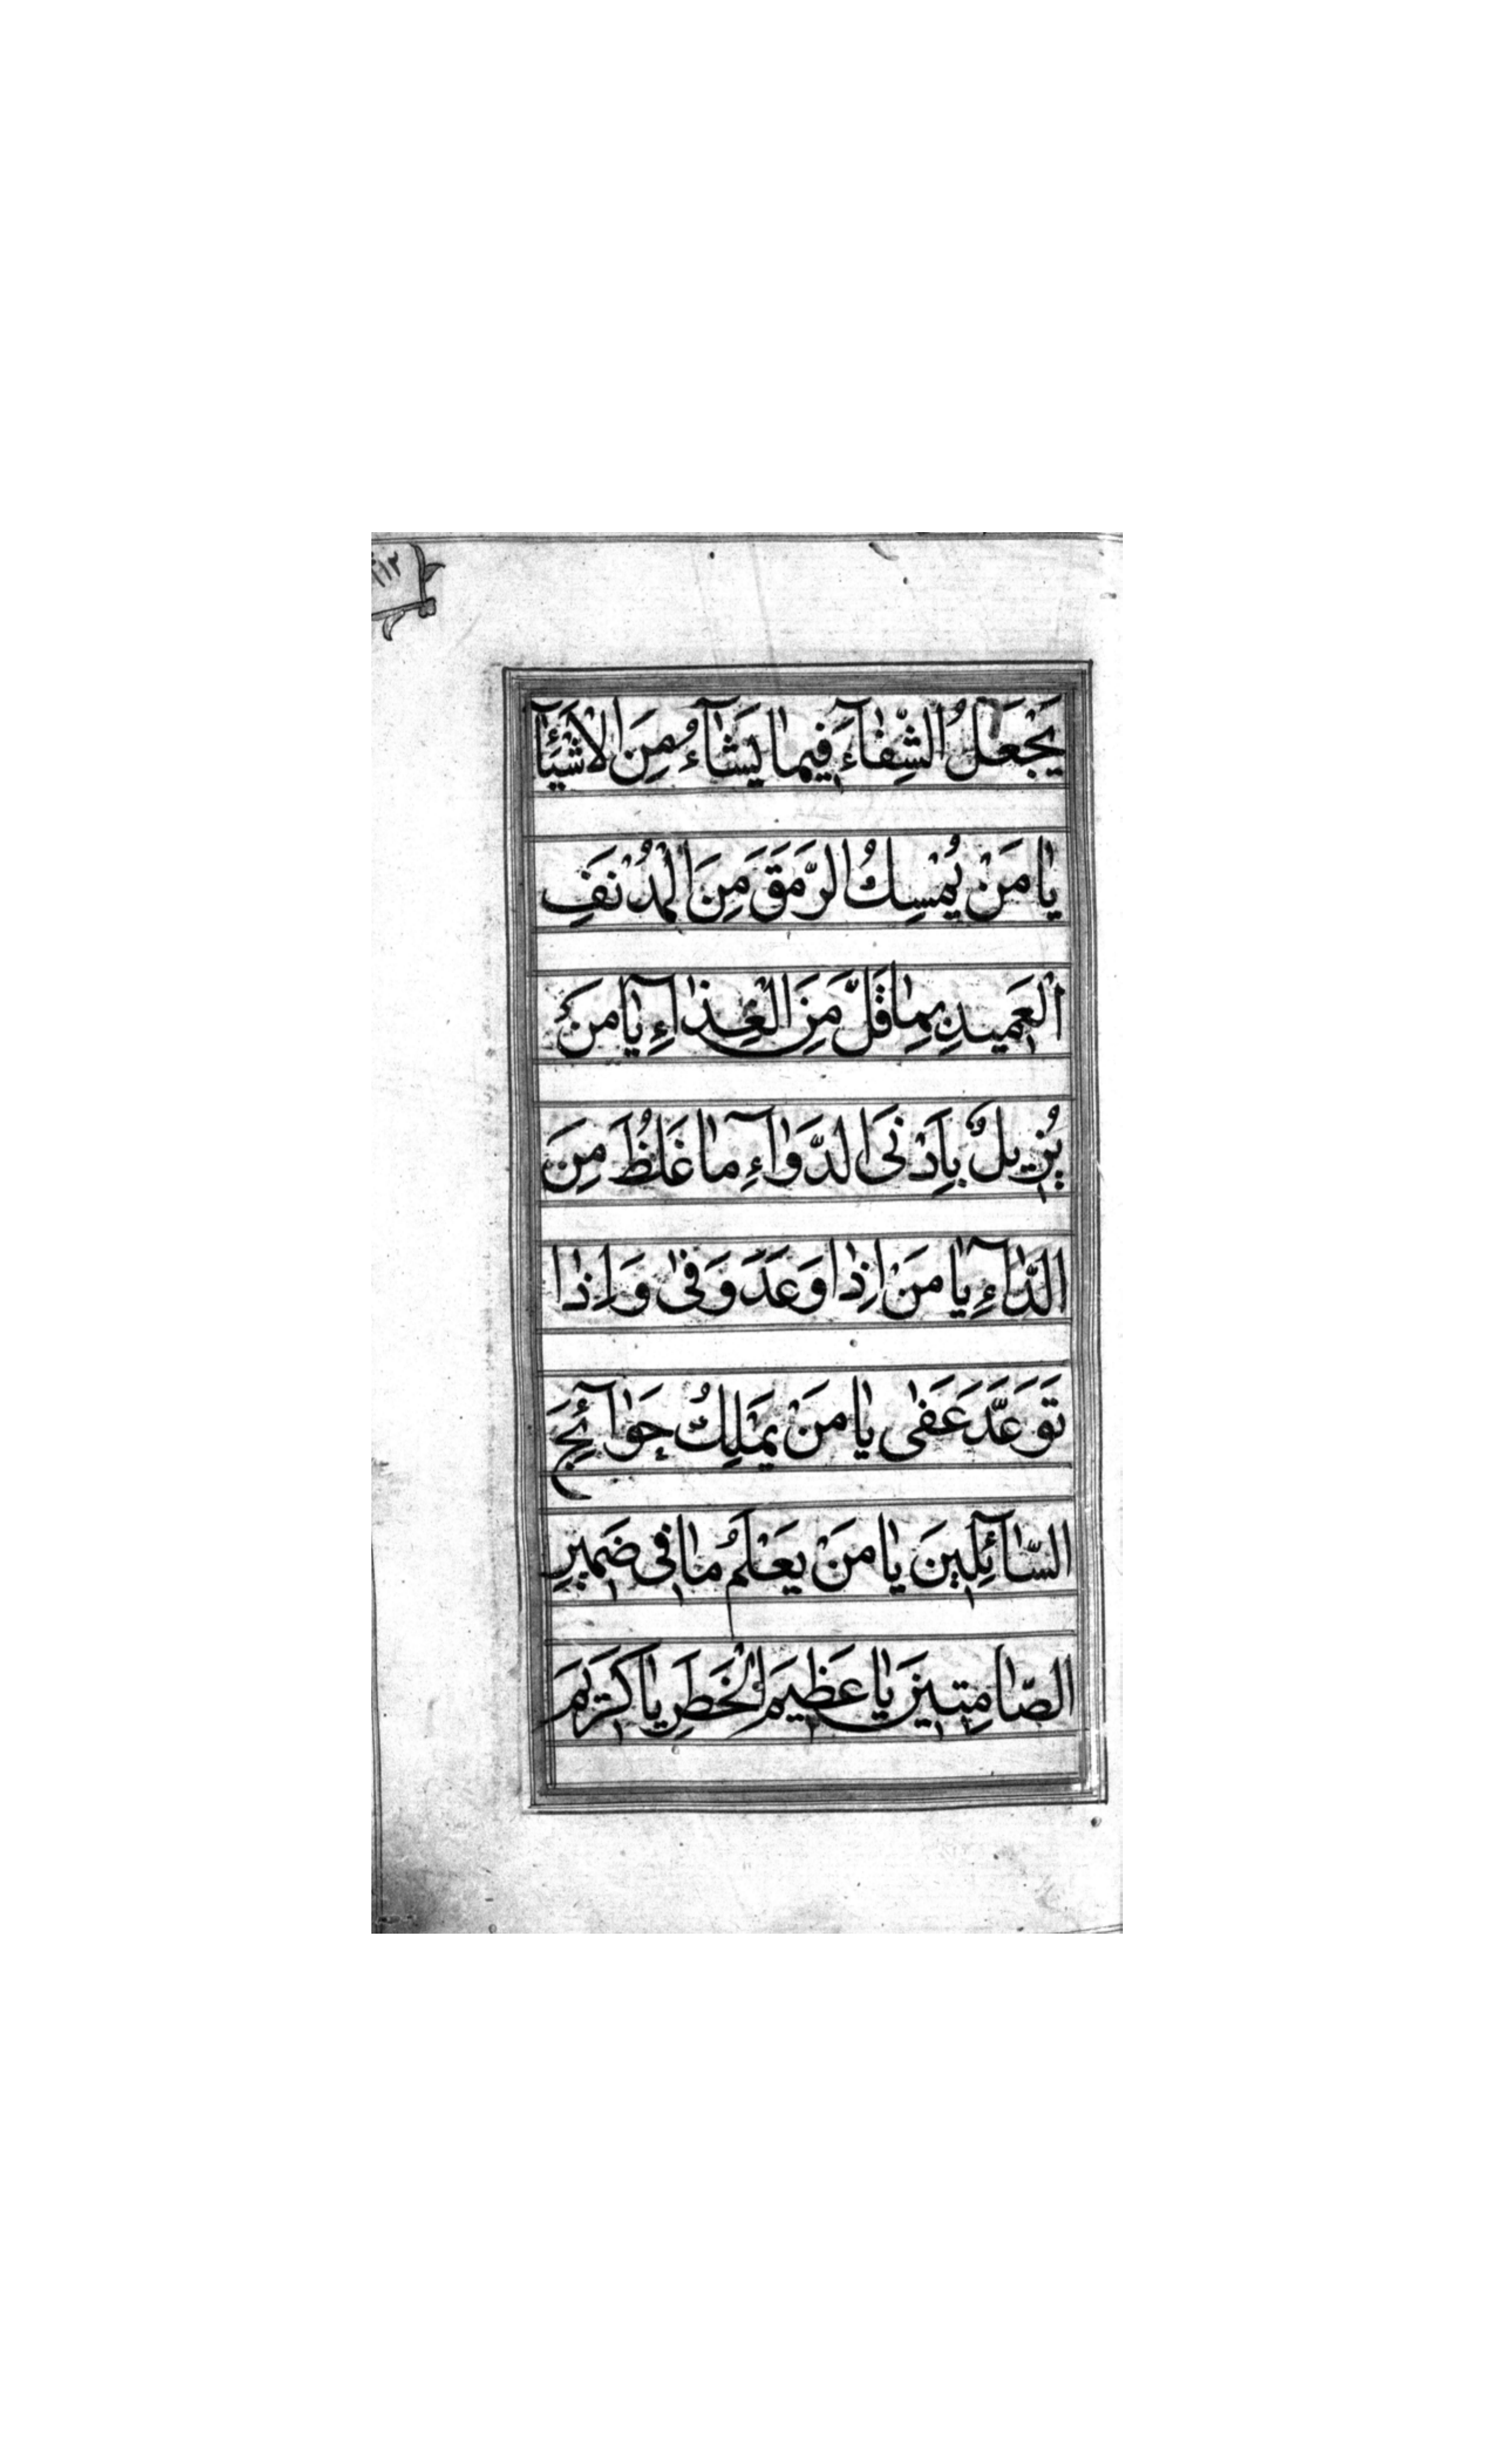 يَجْعَلُ الشِّفٰآءَ فِيمٰا يَشٰآءُ مِنَ الْاَشْيٰآءِ
يٰا مَنْ يُمْسِكُ الرَّمَقَ مِنَ الْمُدْنَفِ
الْعَمِيدِ بِمٰا قَلَّ مِنَ الْغِذٰآءِ يٰا مَنْ
يُزِيلُ بِاَدْنَى الدَّوٰآءِ مٰا غَلُظَ مِنَ
الدّٰآءِ يٰا مَنْ اِذٰا وَعَدَ وَفٰى وَاِذٰا
تَوَعَّدَ عَفٰى يٰا مَنْ يَمْلِكُ حَوٰآئِجَ
السّٰآئِلِينَ يٰا مَنْ يَعْلَمُ مٰا فِى ضَمِيرِ
الصّٰامِتِينَ يٰا عَظِيمَ الْخَطَرِ يٰا كَرِيمَ